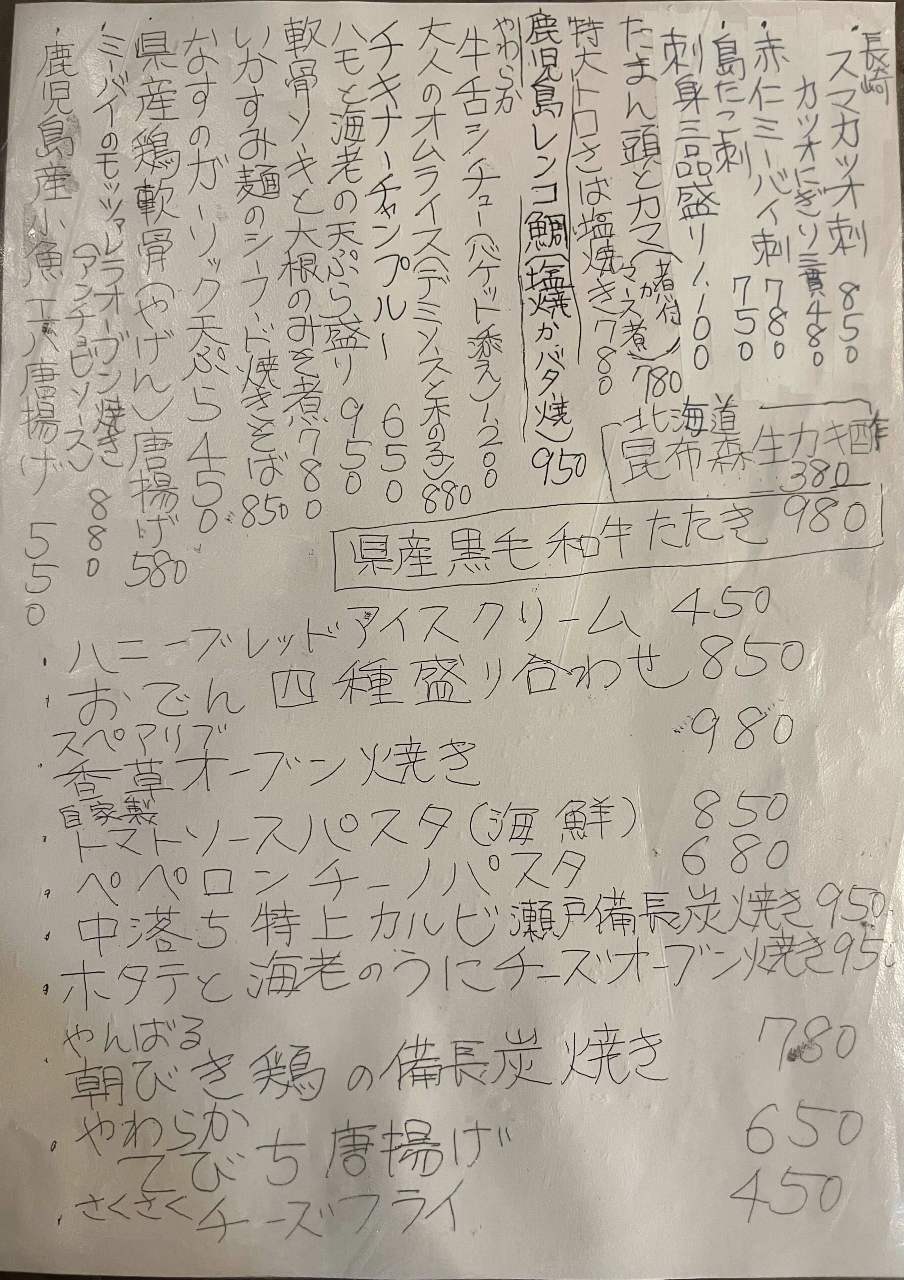 長崎
スマカツオ刺 850
カツオにぎり三貫 480
赤仁ミーバイ刺 780
島たこ刺 750
刺身三品盛り 1100
たまん頭とカマ(煮付かマース煮) 780
特大トロさば塩焼き 780
鹿児島レンコ鯛(塩焼かバタ焼) 950
やわらか
牛舌シチュー(バケット添え) 1200
大人のオムライス(デミソースときのこ) 880
チキナーチャンプルー 650
ハモと海老の天ぷら盛り 950
軟骨ソーキと大根のみそ煮 780
いかすみ麺のシーフード焼きそば 850
なすのガーリック天ぷら 450
県産鶏軟骨(やげん)唐揚げ 580
ミーバイのモッツァレラオーブン焼き
(アンチョビソース) 880
鹿児島産小魚エバ唐揚げ 550
北海道
昆布森生カキ酢
380
県産黒毛和牛たたき 980
ハニーブレッドアイスクリーム 450
おでん四種盛り合わせ 850
スペアリブ
香草オーブン焼き 980
自家製
トマトソースパスタ(海鮮) 850
ペペロンチーノパスタ 680
中落ち特上カルビ瀬戸備長炭焼き 950
ホタテと海老のうにチーズオーブン焼き 950
やんばる
朝びき鶏の備長炭焼き 780
やわらか
てびち唐揚げ 650
さくさくチーズフライ 450